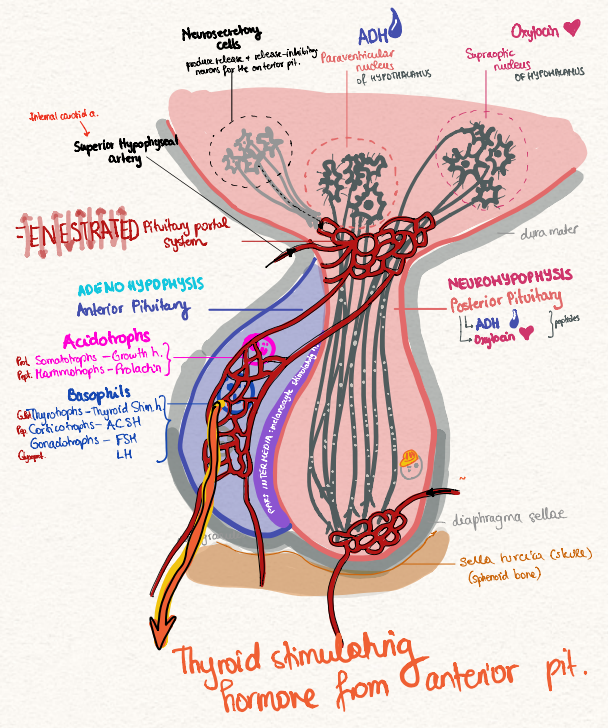 Neurosecretory
cells
produce release + release-inhibiting
neurons for the anterior pit.
ADH
Paraventricular
nucleus
of HYPOTHALAMUS
Oxytocin
Supraoptic
nucleus
OF HYPOTHALAMUS
Internal carotid a.
Superior Hypophyseal
artery
FENESTRATED Pituitary portal
system
dura mater
ADENOHYPOPHYSIS
Anterior Pituitary
NEUROHYPOPHYSIS
Posterior Pituitary
ADH
Oxytocin
peptides
Acidotrophs
Somatotrophs - Growth h.
Mammotrophs - Prolactin
Basophils
Thyrotrophs - Thyroid Stim. h.
Corticotrophs - ACSH
Gonadotrophs - FSH
LH
PARS INTERMEDIA: melanocyte stimulating h.
diaphragma sellae
sella turcica (skull)
(sphenoid bone)
Thyroid stimulating
hormone from anterior pit.